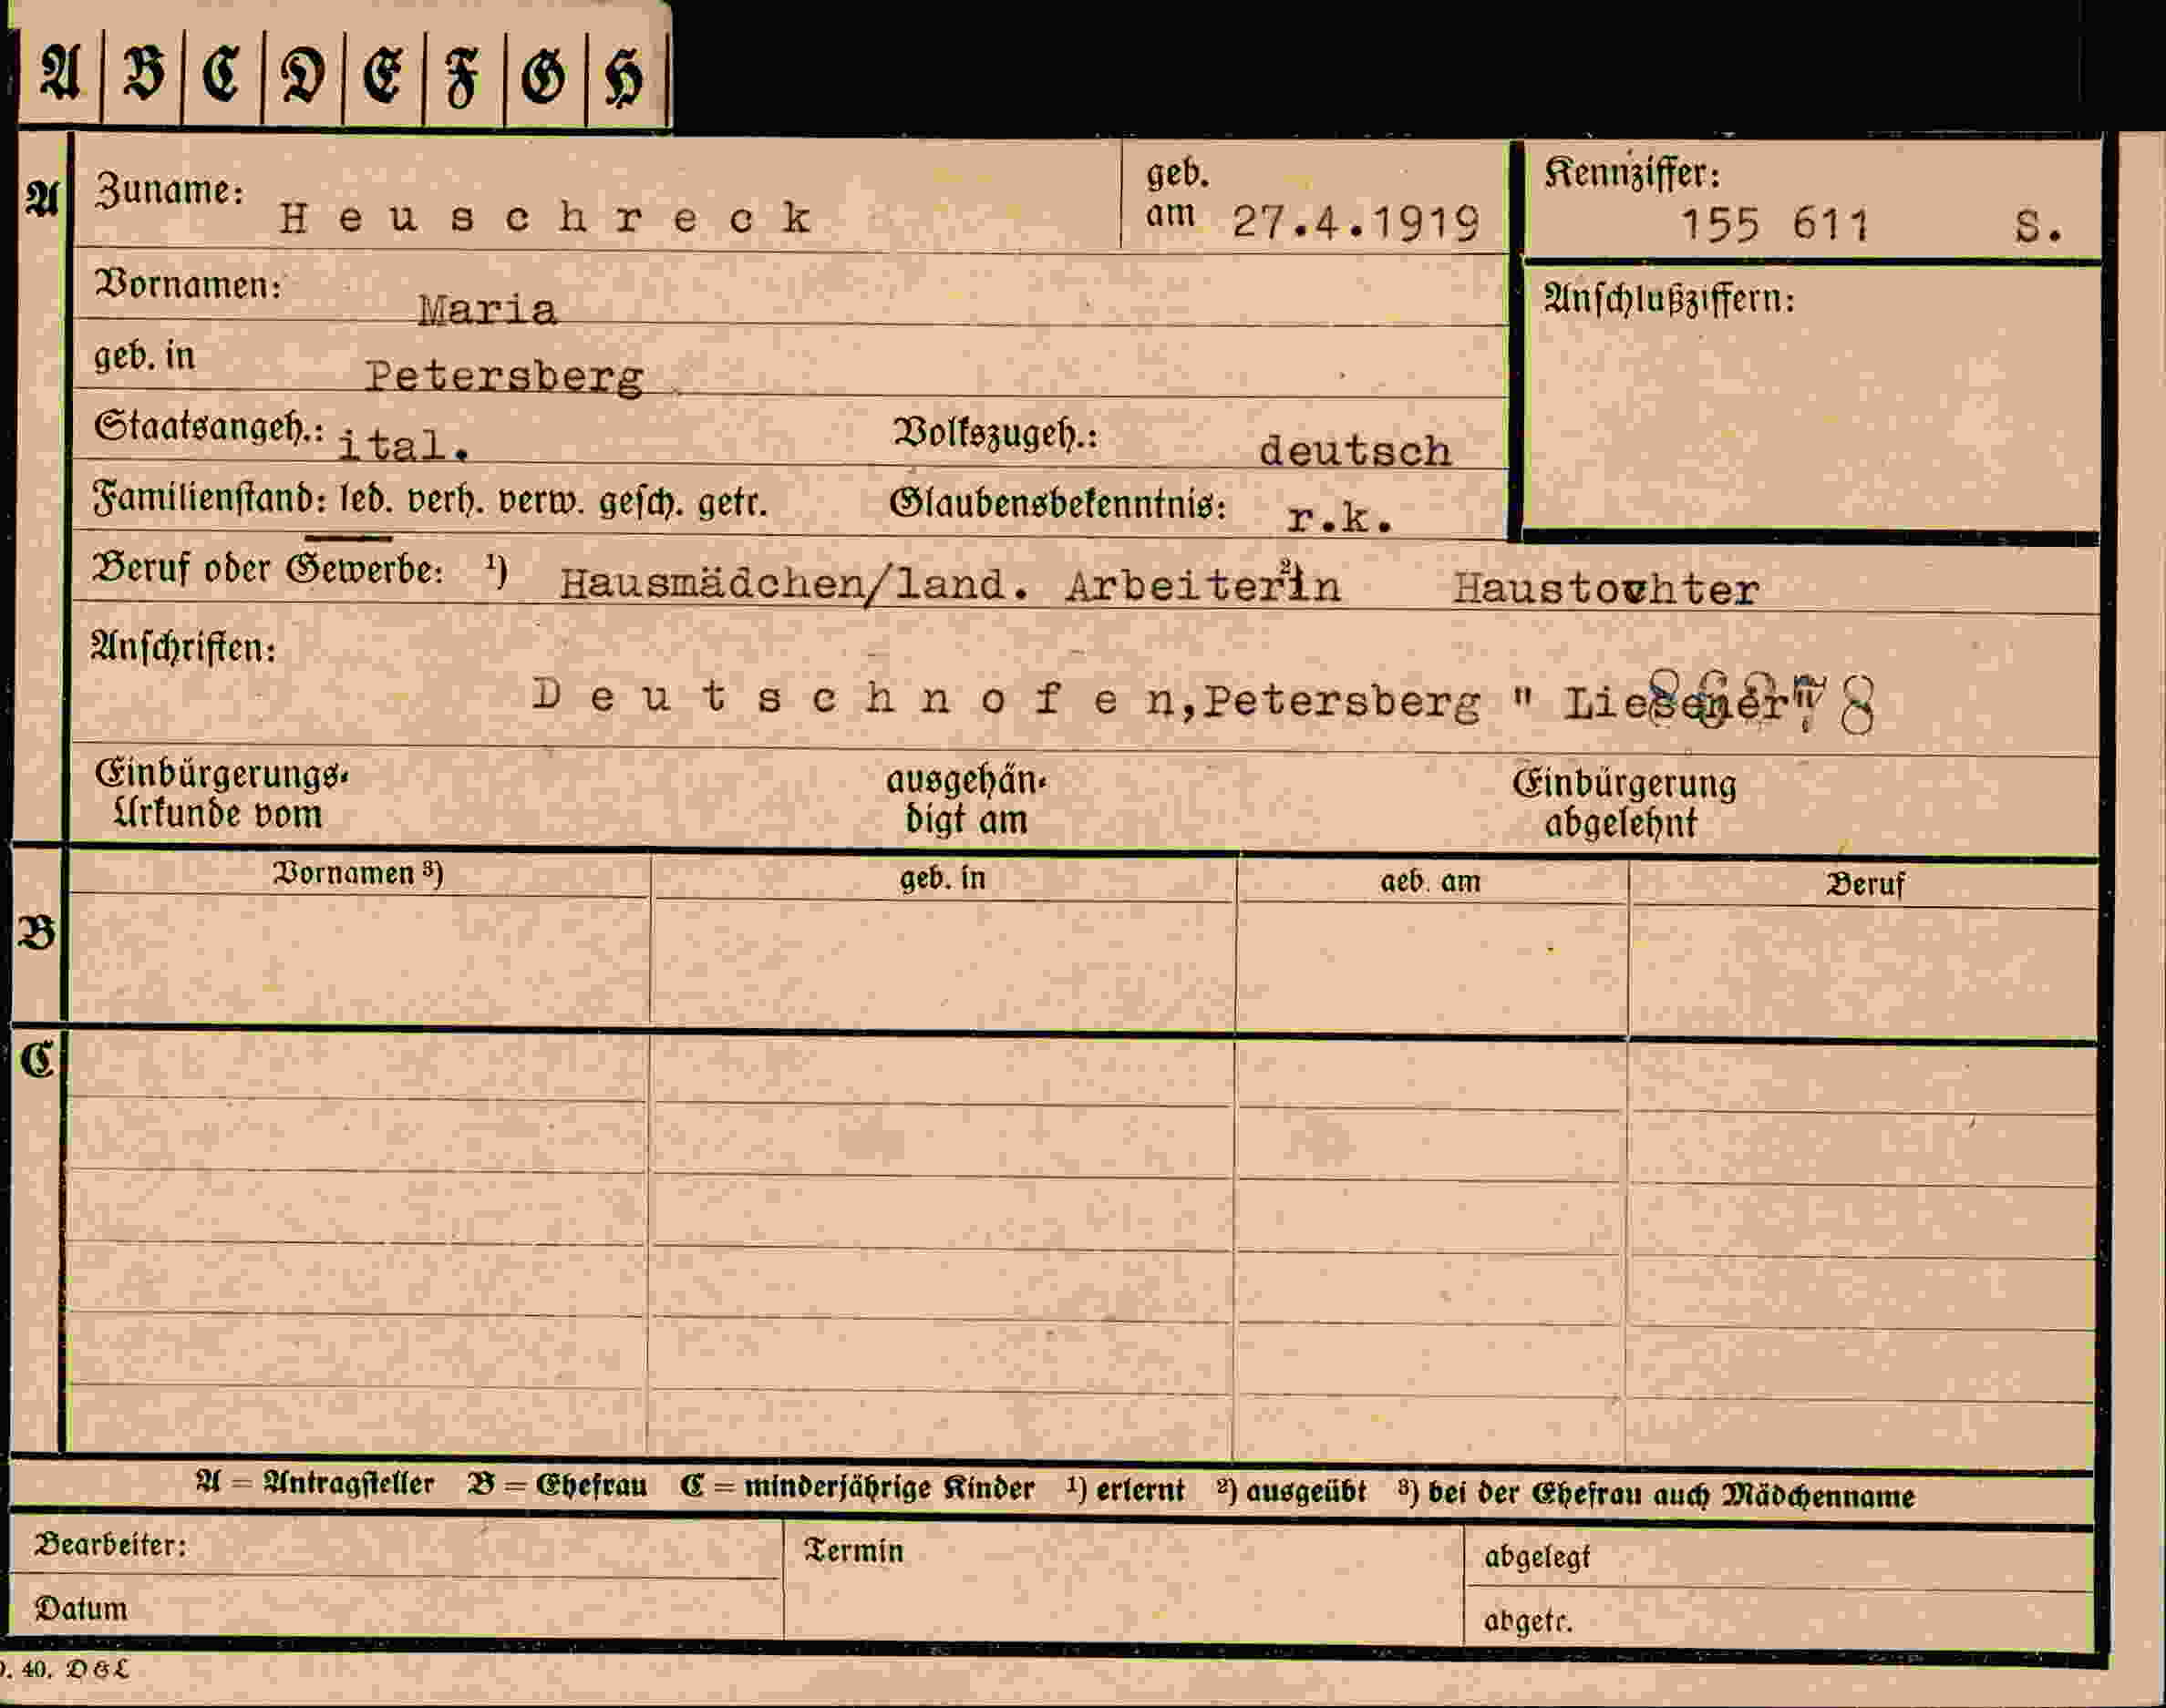 A B C D E F G H
A Zuname: Heuschreck geb. am 27.4.1919 Kennziffer: 155 611 S.
Vornamen: Maria Anschlußziffern:
geb. in Petersberg
Staatsangeh.: ital. Volkszugeh.: deutsch
Familienstand: led. verh. verw. gesch. getr. Glaubensbekenntnis: r.k.
Beruf oder Gewerbe: ¹) Hausmädchen/land. Arbeiterin ²) Haustochter
Anschriften:
Deutschnofen, Petersberg "
Einbürgerungs- ausgehän- Einbürgerung
Urkunde vom digt am abgelehnt
Vornamen ³) geb. in geb. am Beruf
B
C
A = Antragsteller B = Ehefrau C = minderjährige Kinder ¹) erlernt ²) ausgeübt ³) bei der Ehefrau auch Mädchenname
Bearbeiter: Termin abgelegt
Datum abgetr.
40. D&L